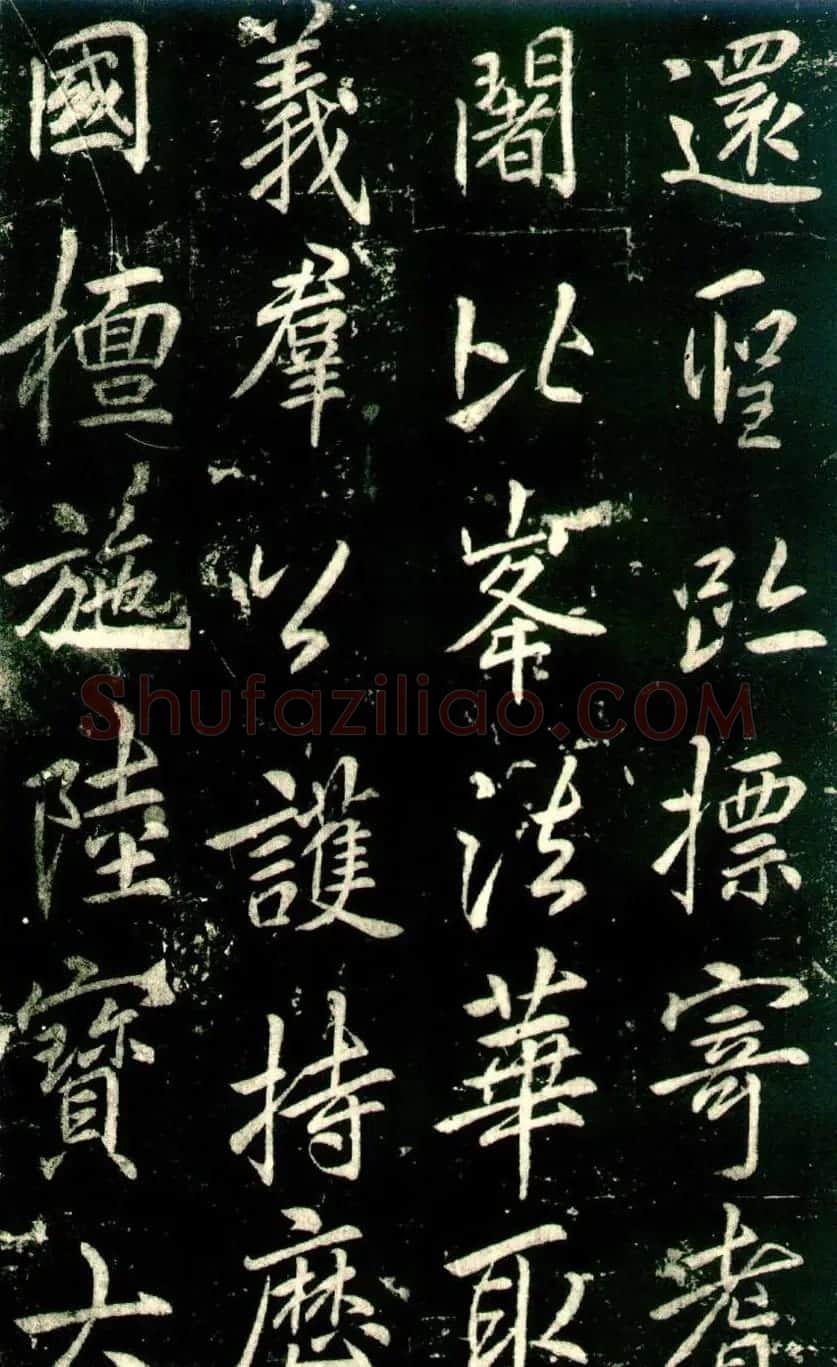 還聖趾摽寄耆
闍比峯法華取
義羣以護持歷
國檀施陸寶大
Shufaziliao.COM